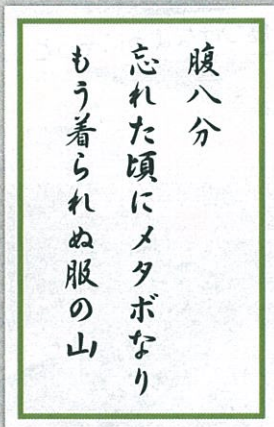 腹八分
忘れた頃にメタボなり
もう着られぬ服の山